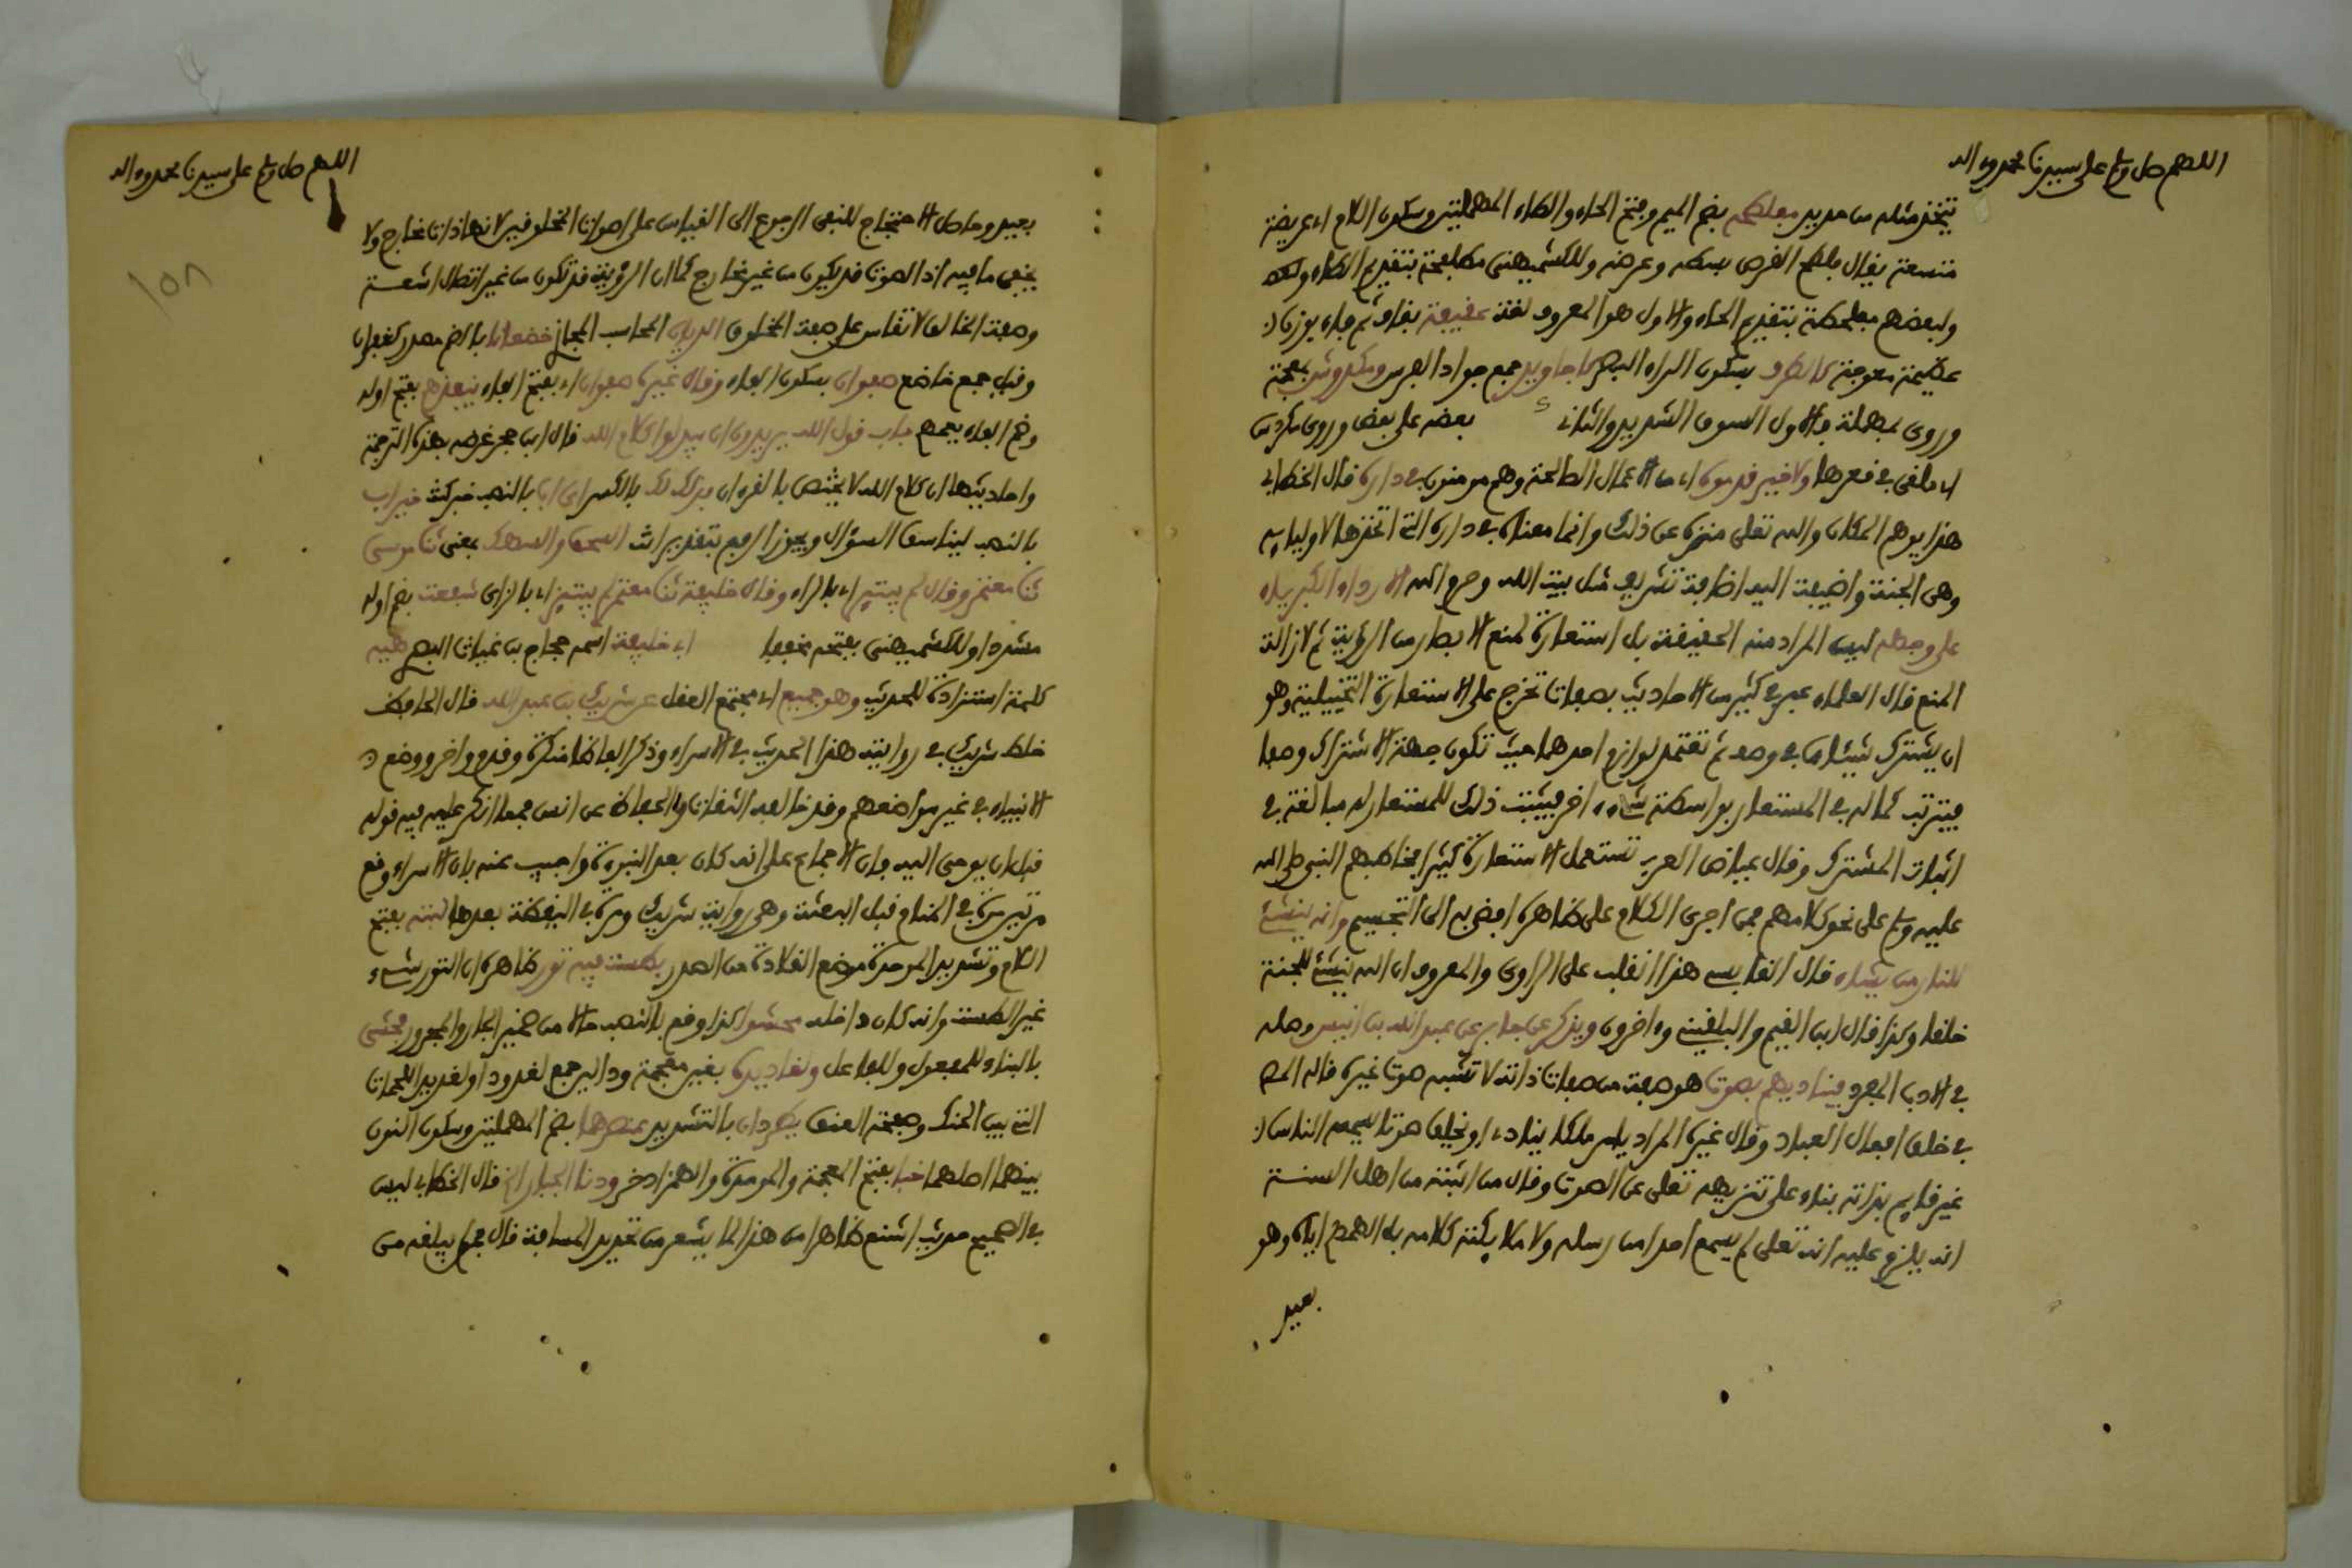 اللهم صل وسلم على سيدنا محمد وءاله
تتخذ مثله من حديد مفلطحة بضم الميم وفتح الفاء والطاء المهملتين وسكون اللام اي عريضة
متسعة يقال فلطح القرص بسطه وعرضه وللكشميهني مطلفحة بتقديم الطاء
ولبعضهم مفلحطة بتقديم الحاء والاول هو المعروف لغة عقيفة بقاف ثم فاء بوزن
عظيمة معوجة كالطرف بسكون الراء البصر كاجاويد جمع جواد الفرس ومكدوش بمعجمة
وروي بمهملة والاول السوق الشديد والثاني بعضه على بعض وروي مكردس
اي ملقى في قعرها ولا خير قدموه اي من الاعمال الصالحة وهم مومنون في داره قال الخطابي
هذا يوهم المكان والله تعالى منزه عن ذلك وانما معناه في داره التي اتخذها لاوليايه
وهي الجنة واضيفت اليه اضافة تشريف مثل بيت الله وحرم الله الا رداء الكبرياء
على وجهه ليس المراد منه الحقيقة بل استعارة لمنع الابصار من الرؤية ثم لازالة
المنع قال العلماء عبر في كثير من الاحاديث بصفات تخرج على الاستعارة التخييلية وهو
ان يشترك شيئان في وصف ثم تعتمد لوازم احدهما حيث تكون جهة الاشتراك وصفا
فيترتب كماله في المستعار بواسطة شيء ءاخر فيثبت ذلك للمستعار له مبالغة في
اثبات المشترك وقال عياض العرب تستعمل الاستعارة كثيرا فخاطبهم النبي صلى الله
عليه وسلم على نحو كلامهم فمن اجرى الكلام على ظاهره افضى به الى التجسيم وانه ينشئ
للنار من يشاء قال القابسي هذا انقلب على الراوي والمعروف ان الله ينشئ للجنة
خلقا وكذا قال ابن القيم والبلقيني وءاخرون ويذكر عن جابر عن عبد الله بن انيس وصله
في الادب المفرد فيناديهم بصوت هو صفة من صفات ذاته لا تشبه صوت غيره قاله المصـ
في خلق افعال العباد وقال غيره المراد يامر ملكا ينادي او يخلق صوتا ليسمع الناس
غير قايم بذاته بناء على تنزيهه تعالى عن الصوت وقال من اثبته من اهل السنة
انه يلزم عليه انه تعالى لم يسمع احدا من رسله ولا ملايكته كلامه بل الهمهم اياه وهو
بعيد
اللهم صل وسلم على سيدنا محمد وءاله
١٥٨
بعيد وحاصل الاحتجاج للنفي الرجوع الى القياس على اصوات المخلوقين لانها ذات مخارج ولا
يخفى ما فيه اذ الصوت قد يكون من غير مخارج كما ان الرؤية قد تكون من غير اتصال اشعة
وصفة الخالق لا تقاس على صفة المخلوق الديان المحاسب المجاز خضعانا بالضم مصدر كغفران
وقيل جمع خاضع صفوان بسكون الفاء وقال غيره صفوان اي بفتح الفاء ينفذهم بفتح اوله
وضم الفاء يعمهم باب قول الله يريدون ان يبدلوا كلام الله قال ابن حجر غرضه بهذه الترجمة
واحاديثها ان كلام الله لا يختص بالقرءان بالكسر اي اب بالنصب خبر كنت خير اب
بالنصب ليناسق السؤال ويجوز الرفع بتقدير انت السحق والسهك بمعنى ثنا موسى
ثنا معتمر وقال لم يبتير اي بالراء وقال خليفة ثنا معتمر لم يبتيز اي بالزاي شفعت بضم اوله
مشددا وللكشميهني بفتحه مخففا ابي خليفة اسمه حجاج بن غياث البصـ هيه
كلمة استزادة للحديث وهو جميع اي مجتمع العقل عن شريك بن عبد الله قال الحافظ
خلط شريك في رواية هذا الحديث في الاسراء وذكر الفاظا منكرة وقدم واخر ووضع
الانبياء في غير مواضعهم وقد خالفه الثقات والحفاظ عن انس فمما انكر عليه فيه قوله
قبل ان يوحى اليه فان الاجماع على انه كان بعد النبوة واجيب عنه بان الاسراء وقع
مرتين مرة في المنام قبل البعثة وهي رواية شريك ومرة في اليقظة بعدها لبته بفتح
اللام وتشديد الموحدة موضع القلادة من الصدر بطست فيه تور ظاهره ان التور شيء
غير الطست وانه كان داخله محشوا كذا وقع بالنصب حالا من ضمير الجار والمجرور فحشي
بالبناء للمفعول وللفاعل ولغاديده بغين معجمة ودالين جمع لغدود او لغديد اللحمات
التي بين الحنك وصفحة العنق يطردان بالتشديد عنصرهما بضم المهملتين وسكون النون
بينهما اصلهما خبأ بفتح المعجمة والموحدة والهمز ادخر ودنا الجبار الخ قال الخطابي ليس
في الصحيح حديث اشنع ظاهرا من هذا لما يشعر من تحديد المسافة قال فمن لم يبلغه من